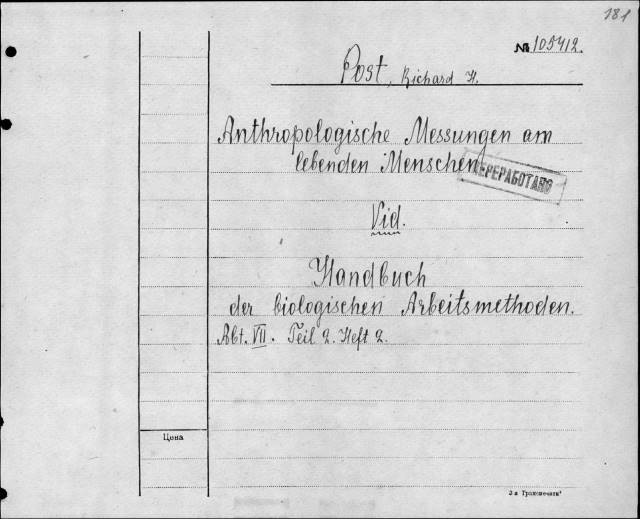 181
№ 105412.
Post, Richard H.
Anthropologische Messungen am
lebenden Menschen
ПЕРЕРАБОТАНО
Vid.
Handbuch
der biologischen Arbeitsmethoden.
Abt. VII. Teil 2. Heft 2.
Цена